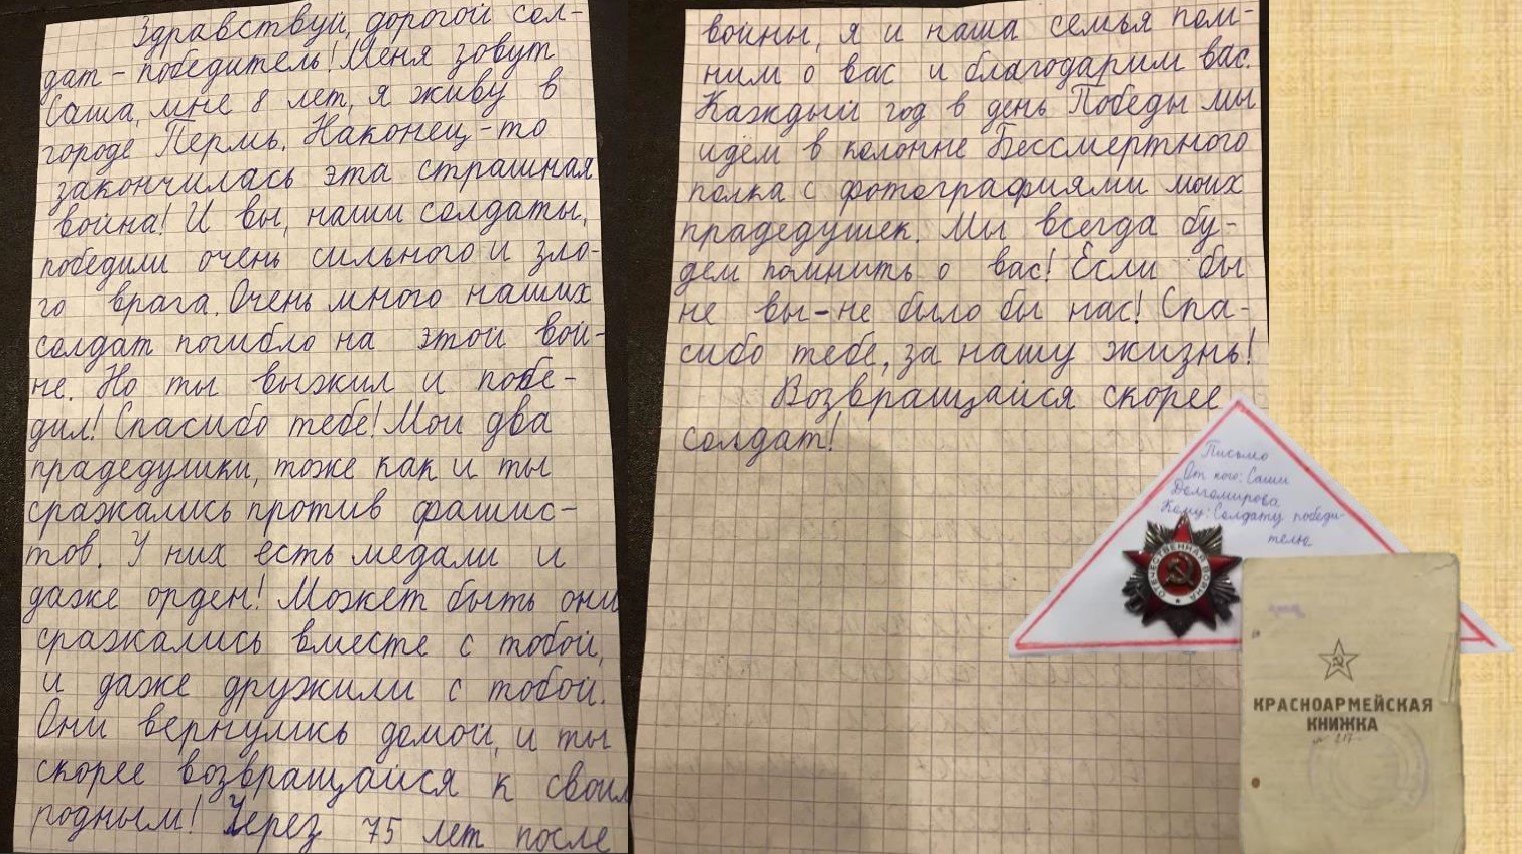 Здравствуй, дорогой сол-
дат - победитель! Меня зовут
Саша, мне 8 лет, я живу в
городе Пермь. Наконец-то
закончилась эта страшная
война! И вы, наши солдаты,
победили очень сильного и зло-
го врага. Очень много наших
солдат погибло на этой вой-
не. Но ты выжил и побе-
дил! Спасибо тебе! Мои два
прадедушки, тоже как и ты
сражались против фашис-
тов. У них есть медали и
даже орден! Может быть они
сражались вместе с тобой,
и даже дружили с тобой.
Они вернулись домой, и ты
скорее возвращайся к своим
родным! Через 75 лет после
войны, я и наша семья пом-
ним о вас и благодарим вас.
Каждый год в день Победы мы
идём в колонне Бессмертного
полка с фотографиями моих
прадедушек. Мы всегда бу-
дем помнить о вас! Если бы
не вы - не было бы нас! Спа-
сибо тебе, за нашу жизнь!
Возвращайся скорее
солдат!
Письмо
От кого: Саши
Долгомирова
Кому: Солдату победи-
телю
ОТЕЧЕСТВЕННАЯ ВОЙНА
КРАСНОАРМЕЙСКАЯ
КНИЖКА